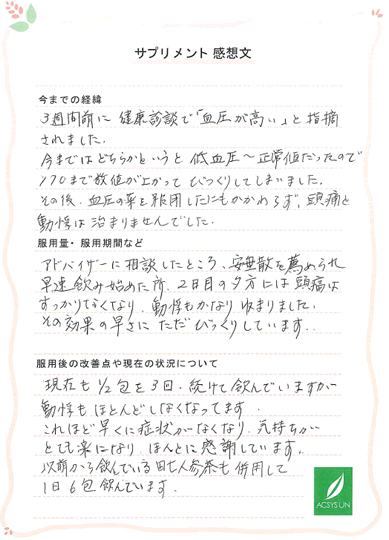 サプリメント 感想文
今までの経緯
3週間前に 健康診談で「血圧が高い」と指摘
されました.
今まではどちらかというと 低血圧〜正常値だったので
170まで数値が上がって びっくりしてしまいました.
その後、血圧の薬を服用したにもかかわらず、頭痛と
動悸は治まりませんでした.
服用量・服用期間など
アドバイザーに相談したところ、安亜散を薦められ
早速飲み始めた所、2日目の夕方には 頭痛は
すっかりなくなり、動悸もかなり 収まりました.
その効果の早さに ただびっくりしています.
服用後の改善点や現在の状況について
現在も 1/2包を3回、続けて飲んでいますが
動悸も ほとんどしなくなってます.
これほど早くに症状がなくなり、気持ちが
とても楽になり、ほんとに感謝しています.
以前から飲んでいる 田七人参茶も 併用して
1日6包 飲んでいます.
ACSYS UN